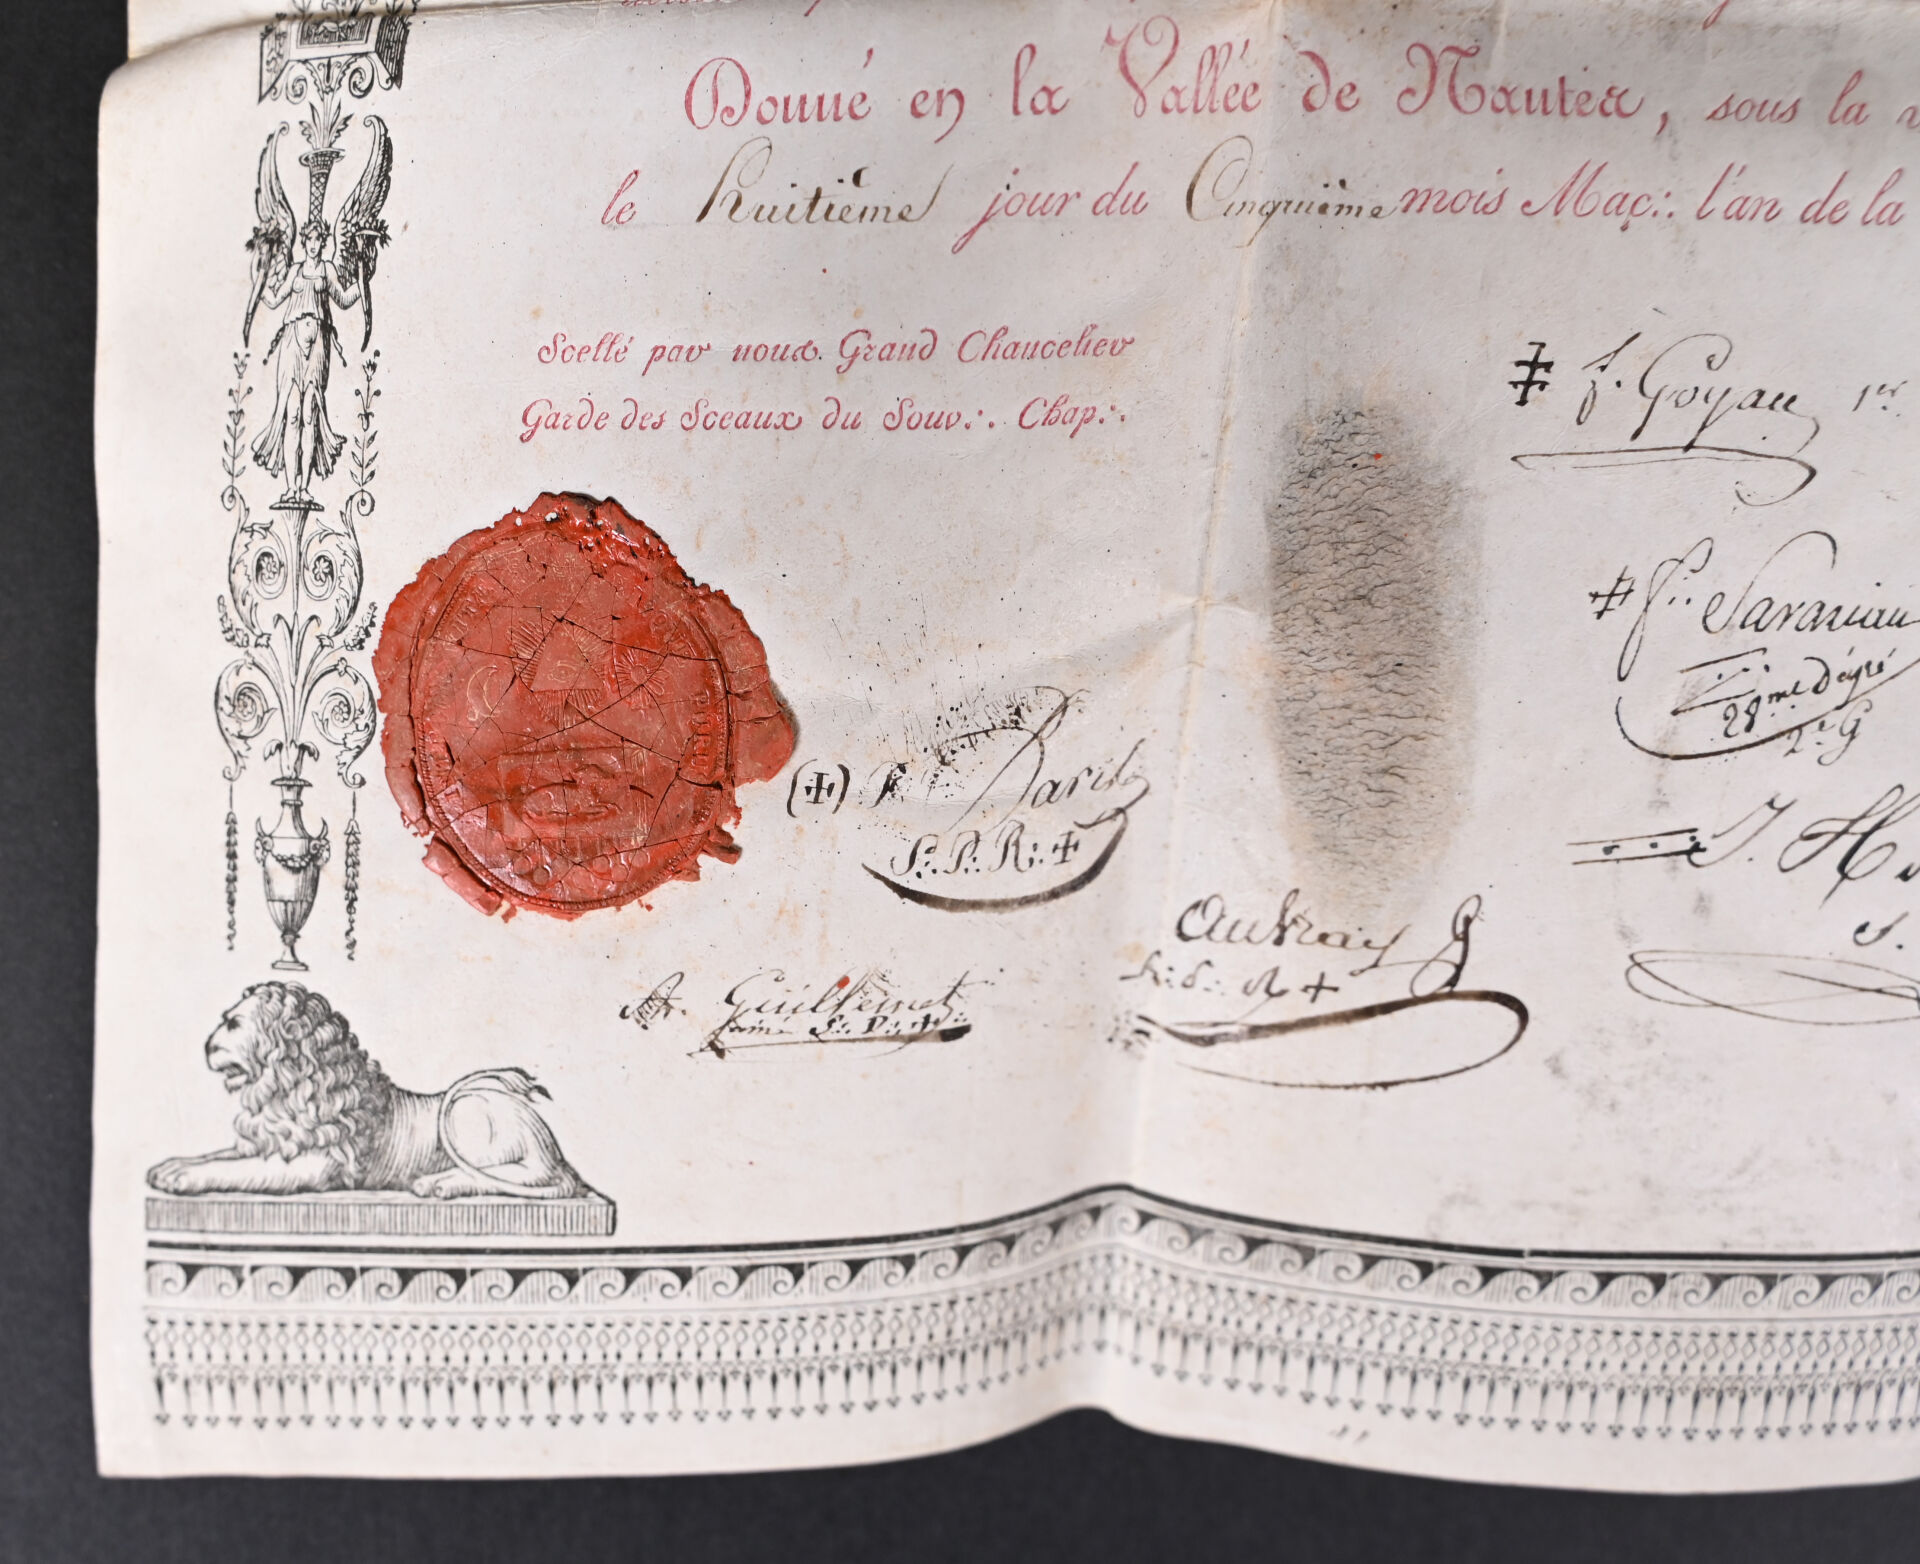 Donné en la Vallée de Nantes, sous la
le huitième jour du Cinquième mois Maç∴ l'an de la
Scellé par nous Grand Chancelier
Garde des Sceaux du Souv∴ Chap∴
f. Goyau 1er
F∴ Saraziau
28me Dégré
2e G
(✠) F. David
S∴ P∴ R∴ ✠
J. H
S.
Aubrais
A. Guillemet